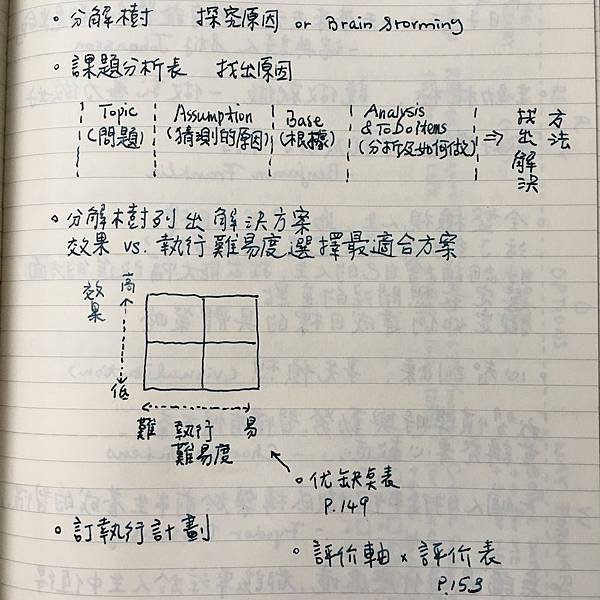 。分解樹 探究原因 or Brain Storming
。課題分析表 找出原因
Topic Assumption Base Analysis & To Do Items
(問題) (猜測的原因) (根據) (分析及如何做) ⇒ 找出解決方法
。分解樹列出解決方案
效果 vs. 執行難易度選擇最適合方案
效果 高
低
難 執行 易
難易度
。优缺桌表
P.149
。訂執行計劃
。評价軸 x 評价表
P.153